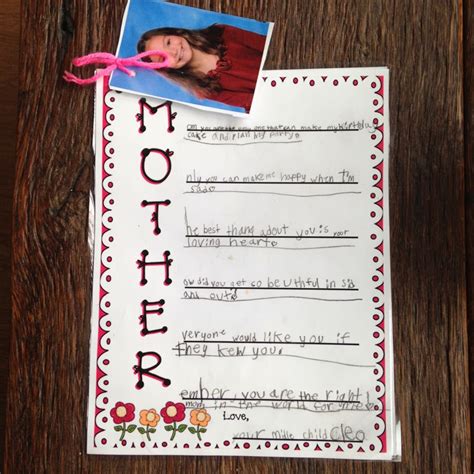 M om you are the only one that can make my birthday
cake and plan my party.
O nly you can make me happy when I'm
sad.
T he best thang about you is yoor
loving heart.
H ow did you get so beuthful in sid
and out?
E veryone would like you if
they kew you.
R ember you are the right
mom in the world for me
Love,
mille child Cleo